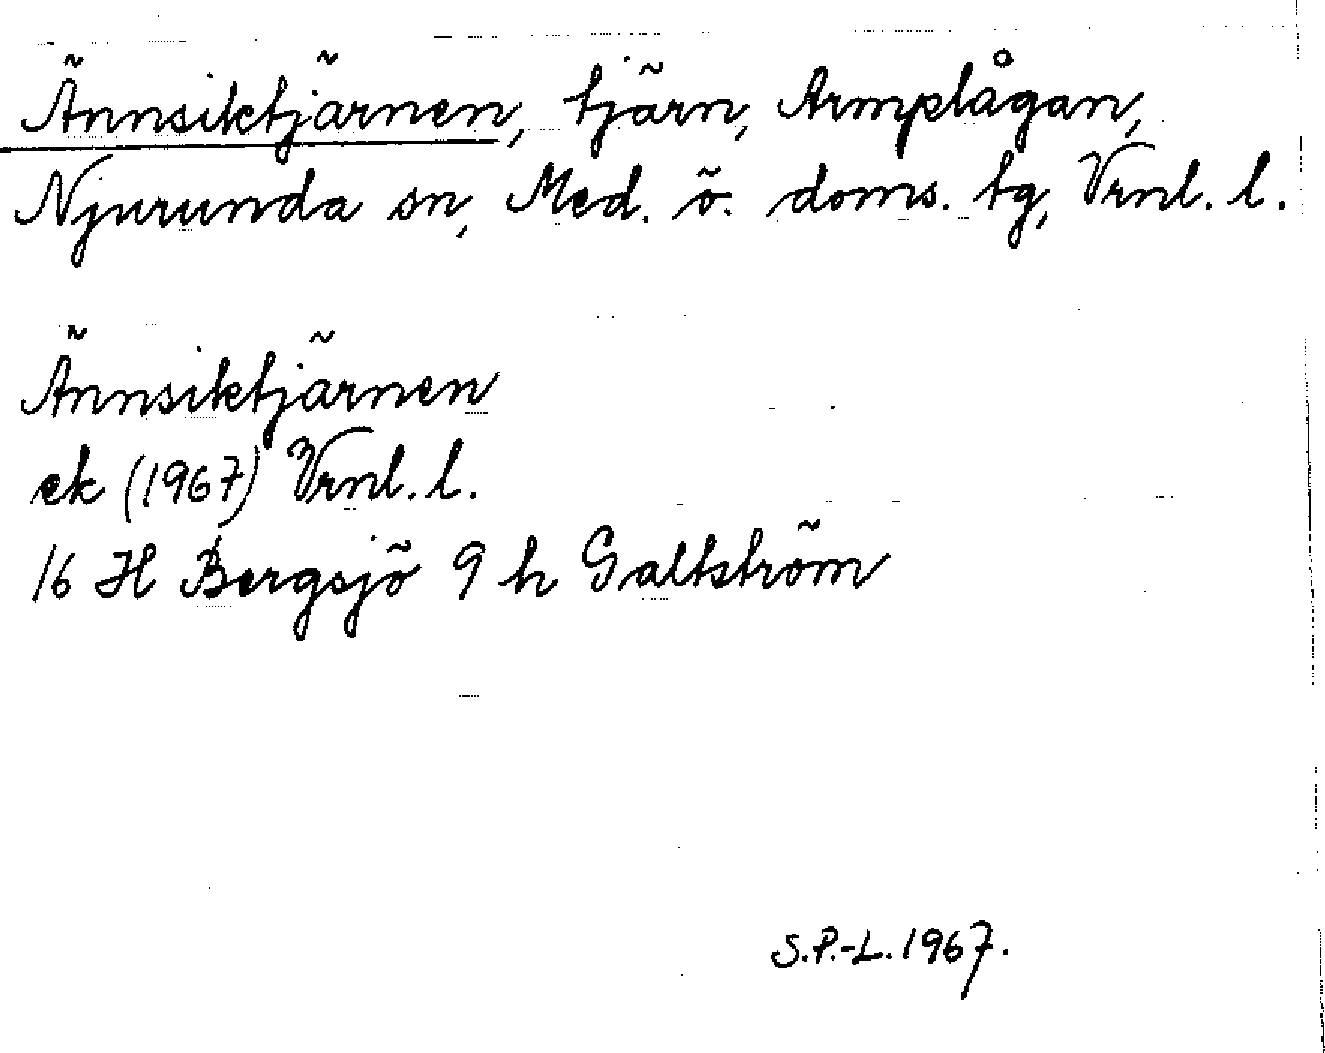 Ännsiktjärnen, tjärn, Armplågan,
Njurunda sn, Med. ö. doms. tg, Vrnl. l.
Ännsiktjärnen
ek (1967) Vrnl. l.
16 H Bergsjö 9 h Galtström
S.P.-L. 1967.